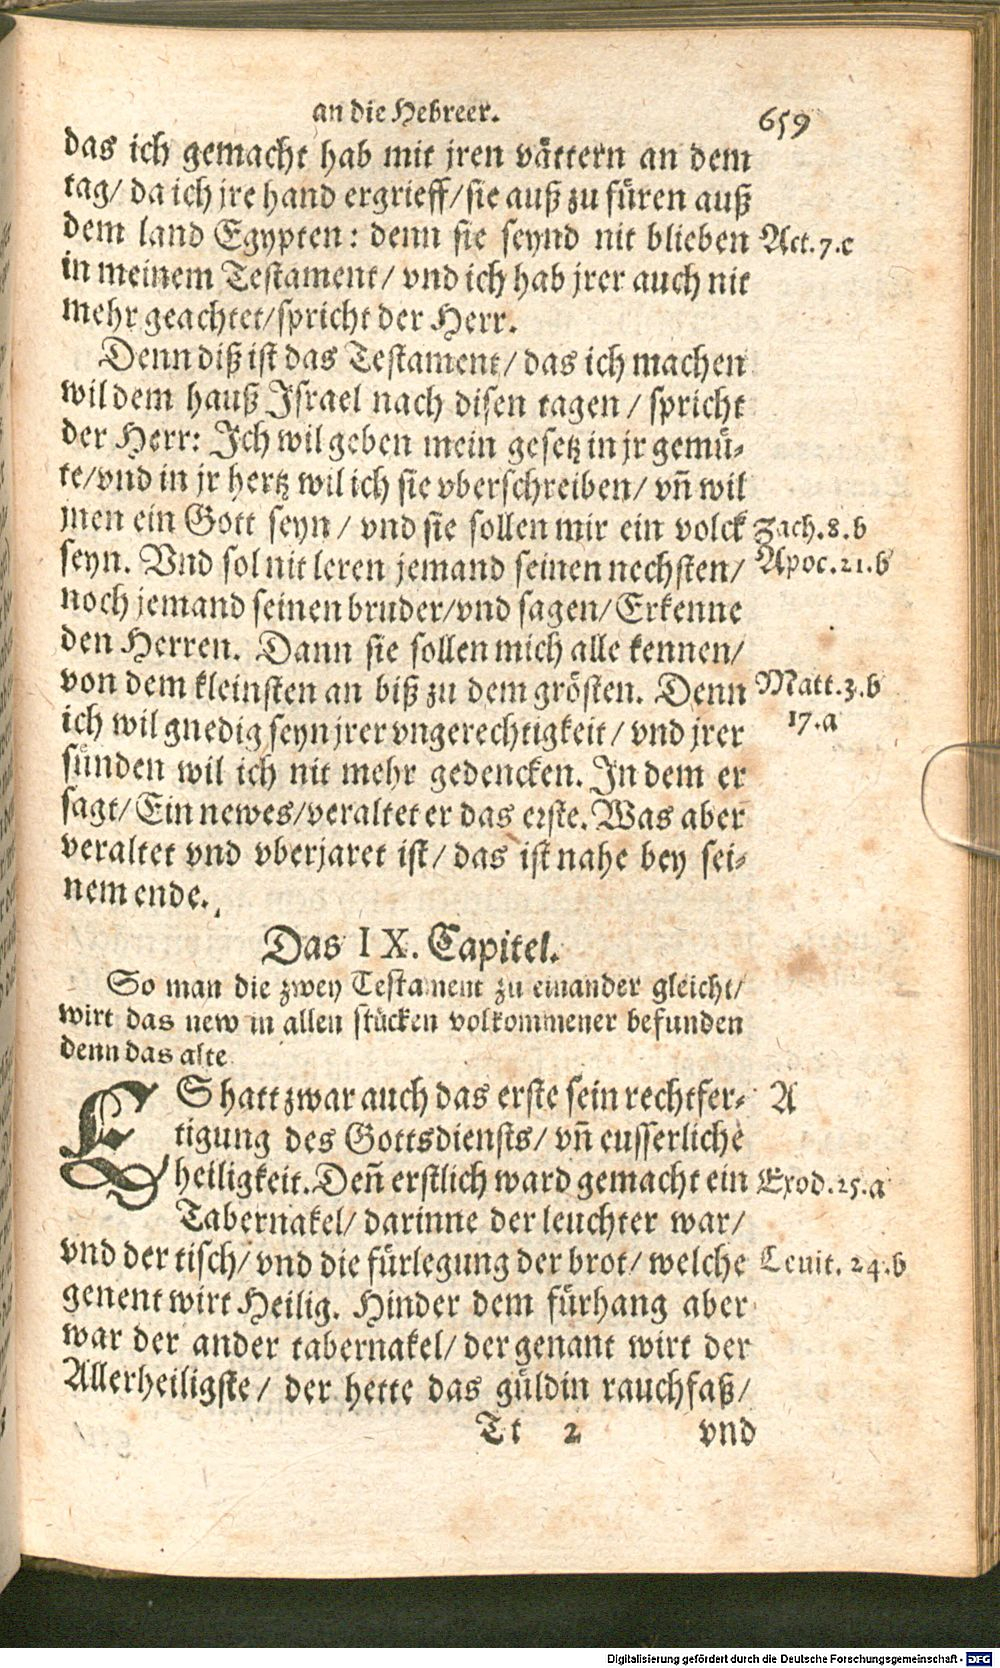 an die Hebreer. 659
das ich gemacht hab mit jren vättern an dem
tag/ da ich jre hand ergrieff/ sie auß zu füren auß
dem land Egypten: denn sie seynd nit blieben Act. 7. c
in meinem Testament/ vnd ich hab jrer auch nit
mehr geachtet/ spricht der Herr.
Denn diß ist das Testament/ das ich machen
wil dem hauß Israel nach disen tagen/ spricht
der Herr: Ich wil geben mein gesetz in jr gemü-
te/ vnd in jr hertz wil ich sie vberschreiben/ vñ wil
jnen ein Gott seyn/ vnd sie sollen mir ein volck Zach. 8. b
seyn. Vnd sol nit leren jemand seinen nechsten/ Apoc. 21. b
noch jemand seinen bruder/ vnd sagen/ Erkenne
den Herren. Dann sie sollen mich alle kennen/
von dem kleinsten an biß zu dem grösten. Denn Matt. 3. b
ich wil gnedig seyn jrer vngerechtigkeit/ vnd jrer 17. a
sünden wil ich nit mehr gedencken. In dem er
sagt/ Ein newes/ veraltet er das erste. Was aber
veraltet vnd vberjaret ist/ das ist nahe bey sei-
nem ende.
Das IX. Capitel.
So man die zwey Testament zu einander gleicht/
wirt das new in allen stücken volkommener befunden
denn das alte
ES hatt zwar auch das erste sein rechtfer- A
tigung des Gottsdiensts/ vñ eusserliche
heiligkeit. Deñ erstlich ward gemacht ein Exod. 25. a
Tabernakel/ darinne der leuchter war/
vnd der tisch/ vnd die fürlegung der brot/ welche Leuit. 24. b
genent wirt Heilig. Hinder dem fürhang aber
war der ander tabernakel/ der genant wirt der
Allerheiligste/ der hette das güldin rauchfaß/
Tt 2 vnd
Digitalisierung gefördert durch die Deutsche Forschungsgemeinschaft - DFG